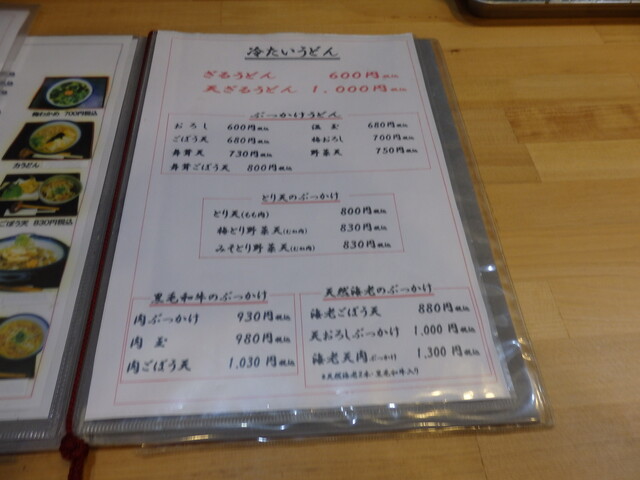 冷たいうどん
ざるうどん 600円税込
天ざるうどん 1,000円税込
ぶっかけうどん
おろし 600円税込 温玉 680円税込
ごぼう天 680円税込 梅おろし 700円税込
舞茸天 730円税込 野菜天 750円税込
舞茸ごぼう天 800円税込
とり天のぶっかけ
とり天(もも肉) 800円税込
梅とり野菜天(むね肉) 830円税込
みそとり野菜天(むね肉) 830円税込
黒毛和牛のぶっかけ
肉ぶっかけ 930円税込
肉玉 980円税込
肉ごぼう天 1,030円税込
天然海老のぶっかけ
海老ごぼう天 880円税込
天おろしぶっかけ 1,000円税込
海老天肉ぶっかけ 1,300円税込
*天然海老2本・黒毛和牛入り
梅わかめ 700円税込
力うどん
ごぼう天 630円税込